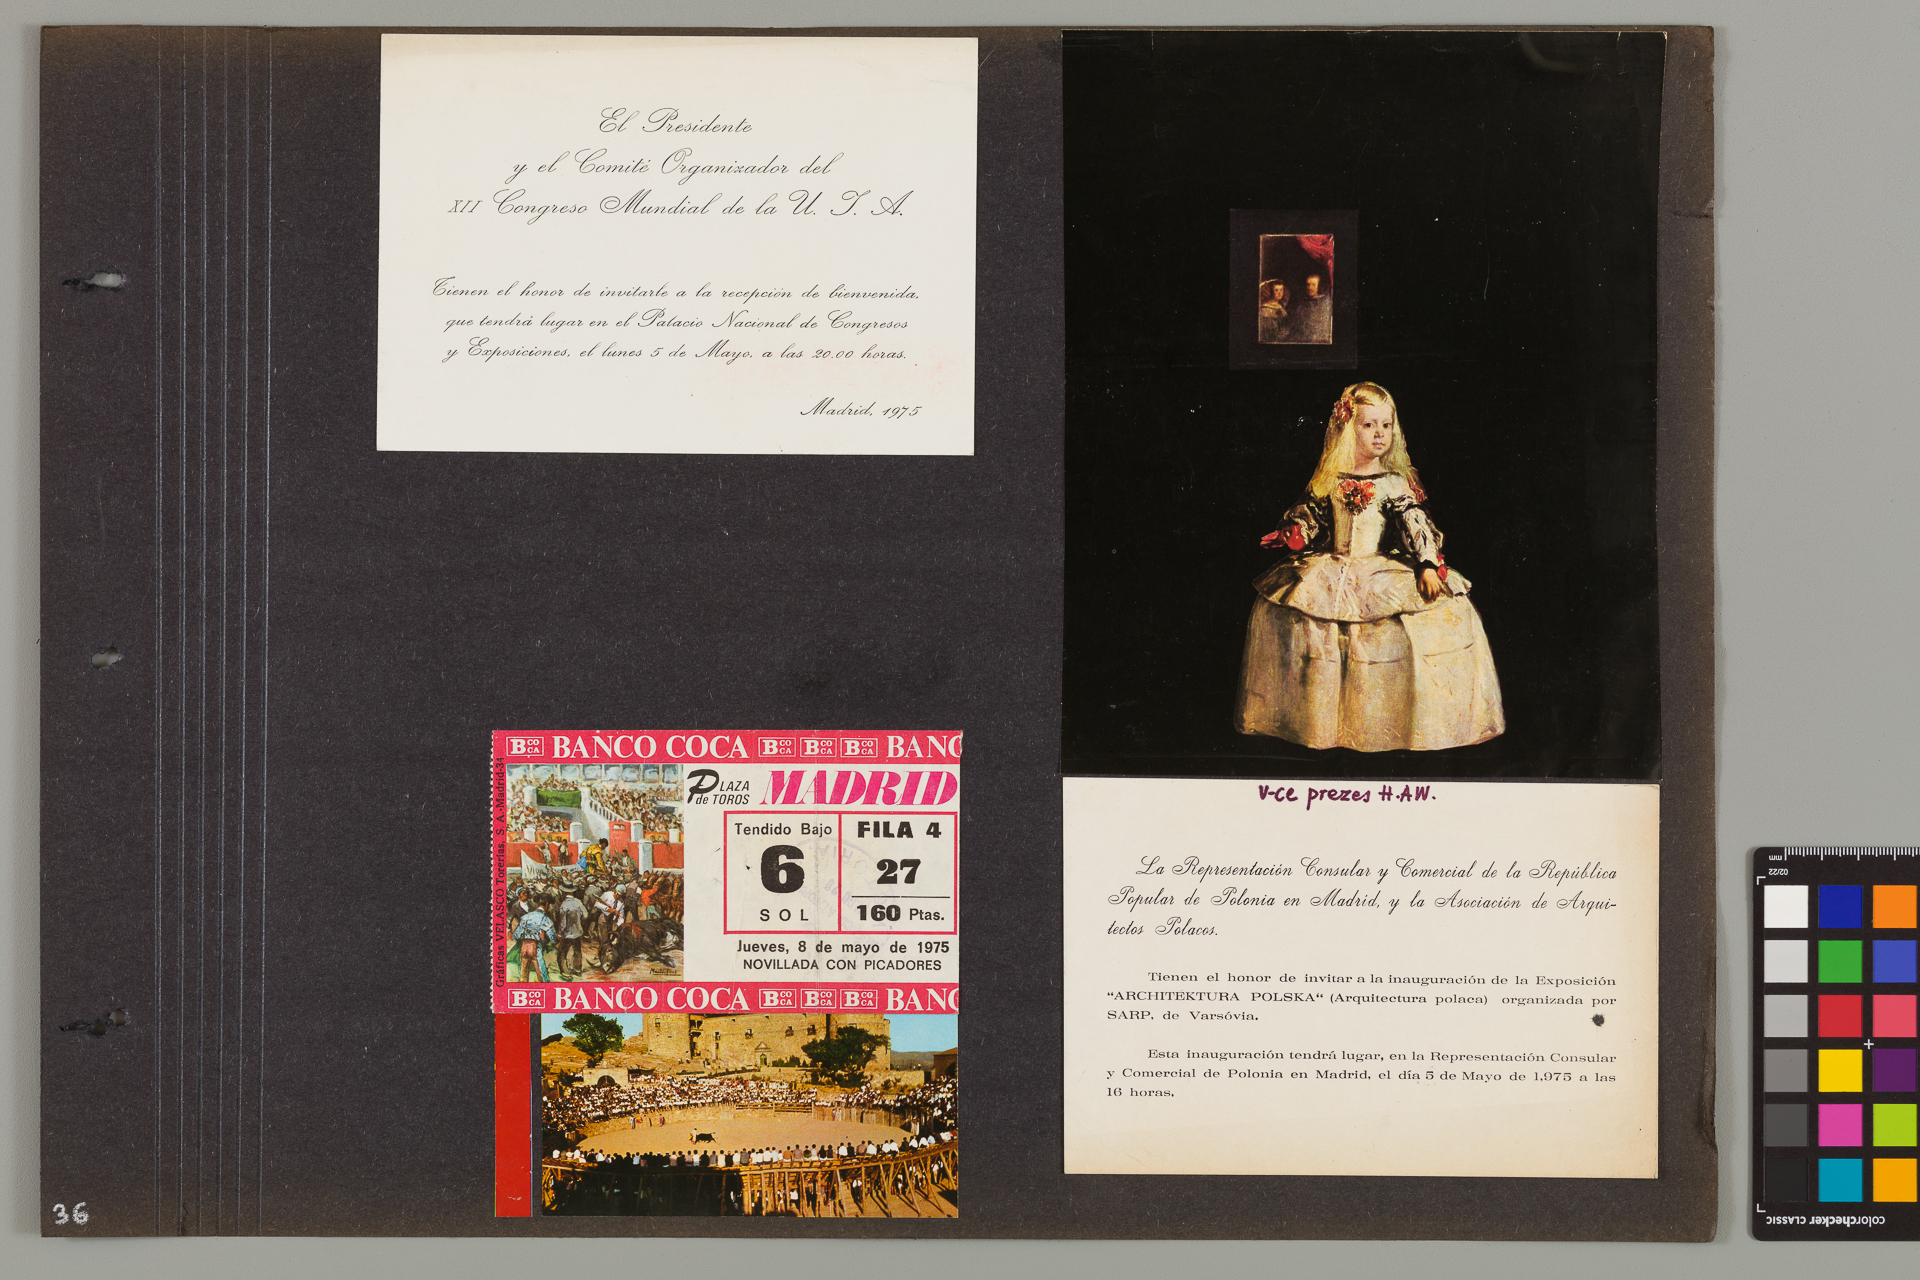 El Presidente
y el Comité Organizador del
XII Congreso Mundial de la U. I. A.
Tienen el honor de invitarle a la recepción de bienvenida,
que tendrá lugar en el Palacio Nacional de Congresos
y Exposiciones, el lunes 5 de Mayo, a las 20.00 horas.
Madrid, 1975
BCOCA BANCO COCA BCOCA BCOCA BCOCA BANC
Gráficas VELASCO Torerías, S. A.-Madrid-34
PLAZA
de TOROS
MADRID
Tendido Bajo
6
SOL
FILA 4
27
160 Ptas.
Jueves, 8 de mayo de 1975
NOVILLADA CON PICADORES
BCOCA BANCO COCA BCOCA BCOCA BCOCA BANC
V-ce prezes H.AW.
La Representación Consular y Comercial de la República
Popular de Polonia en Madrid, y la Asociación de Arqui-
tectos Polacos.
Tienen el honor de invitar a la inauguración de la Exposición
“ARCHITEKTURA POLSKA“ (Arquitectura polaca) organizada por
SARP, de Varsóvia.
Esta inauguración tendrá lugar, en la Representación Consular
y Comercial de Polonia en Madrid, el día 5 de Mayo de 1,975 a las
16 horas.
36
mm
02/22
colorchecker CLASSIC